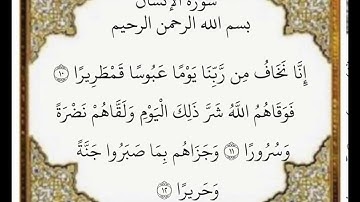 سورة الإنسان
بسم الله الرحمن الرحيم
إِنَّا نَخَافُ مِن رَّبِّنَا يَوْمًا عَبُوسًا قَمْطَرِيرًا ١٠
فَوَقَاهُمُ اللَّهُ شَرَّ ذَلِكَ الْيَوْمِ وَلَقَّاهُمْ نَضْرَةً
وَسُرُورًا ١١ وَجَزَاهُم بِمَا صَبَرُوا جَنَّةً
وَحَرِيرًا ١٢